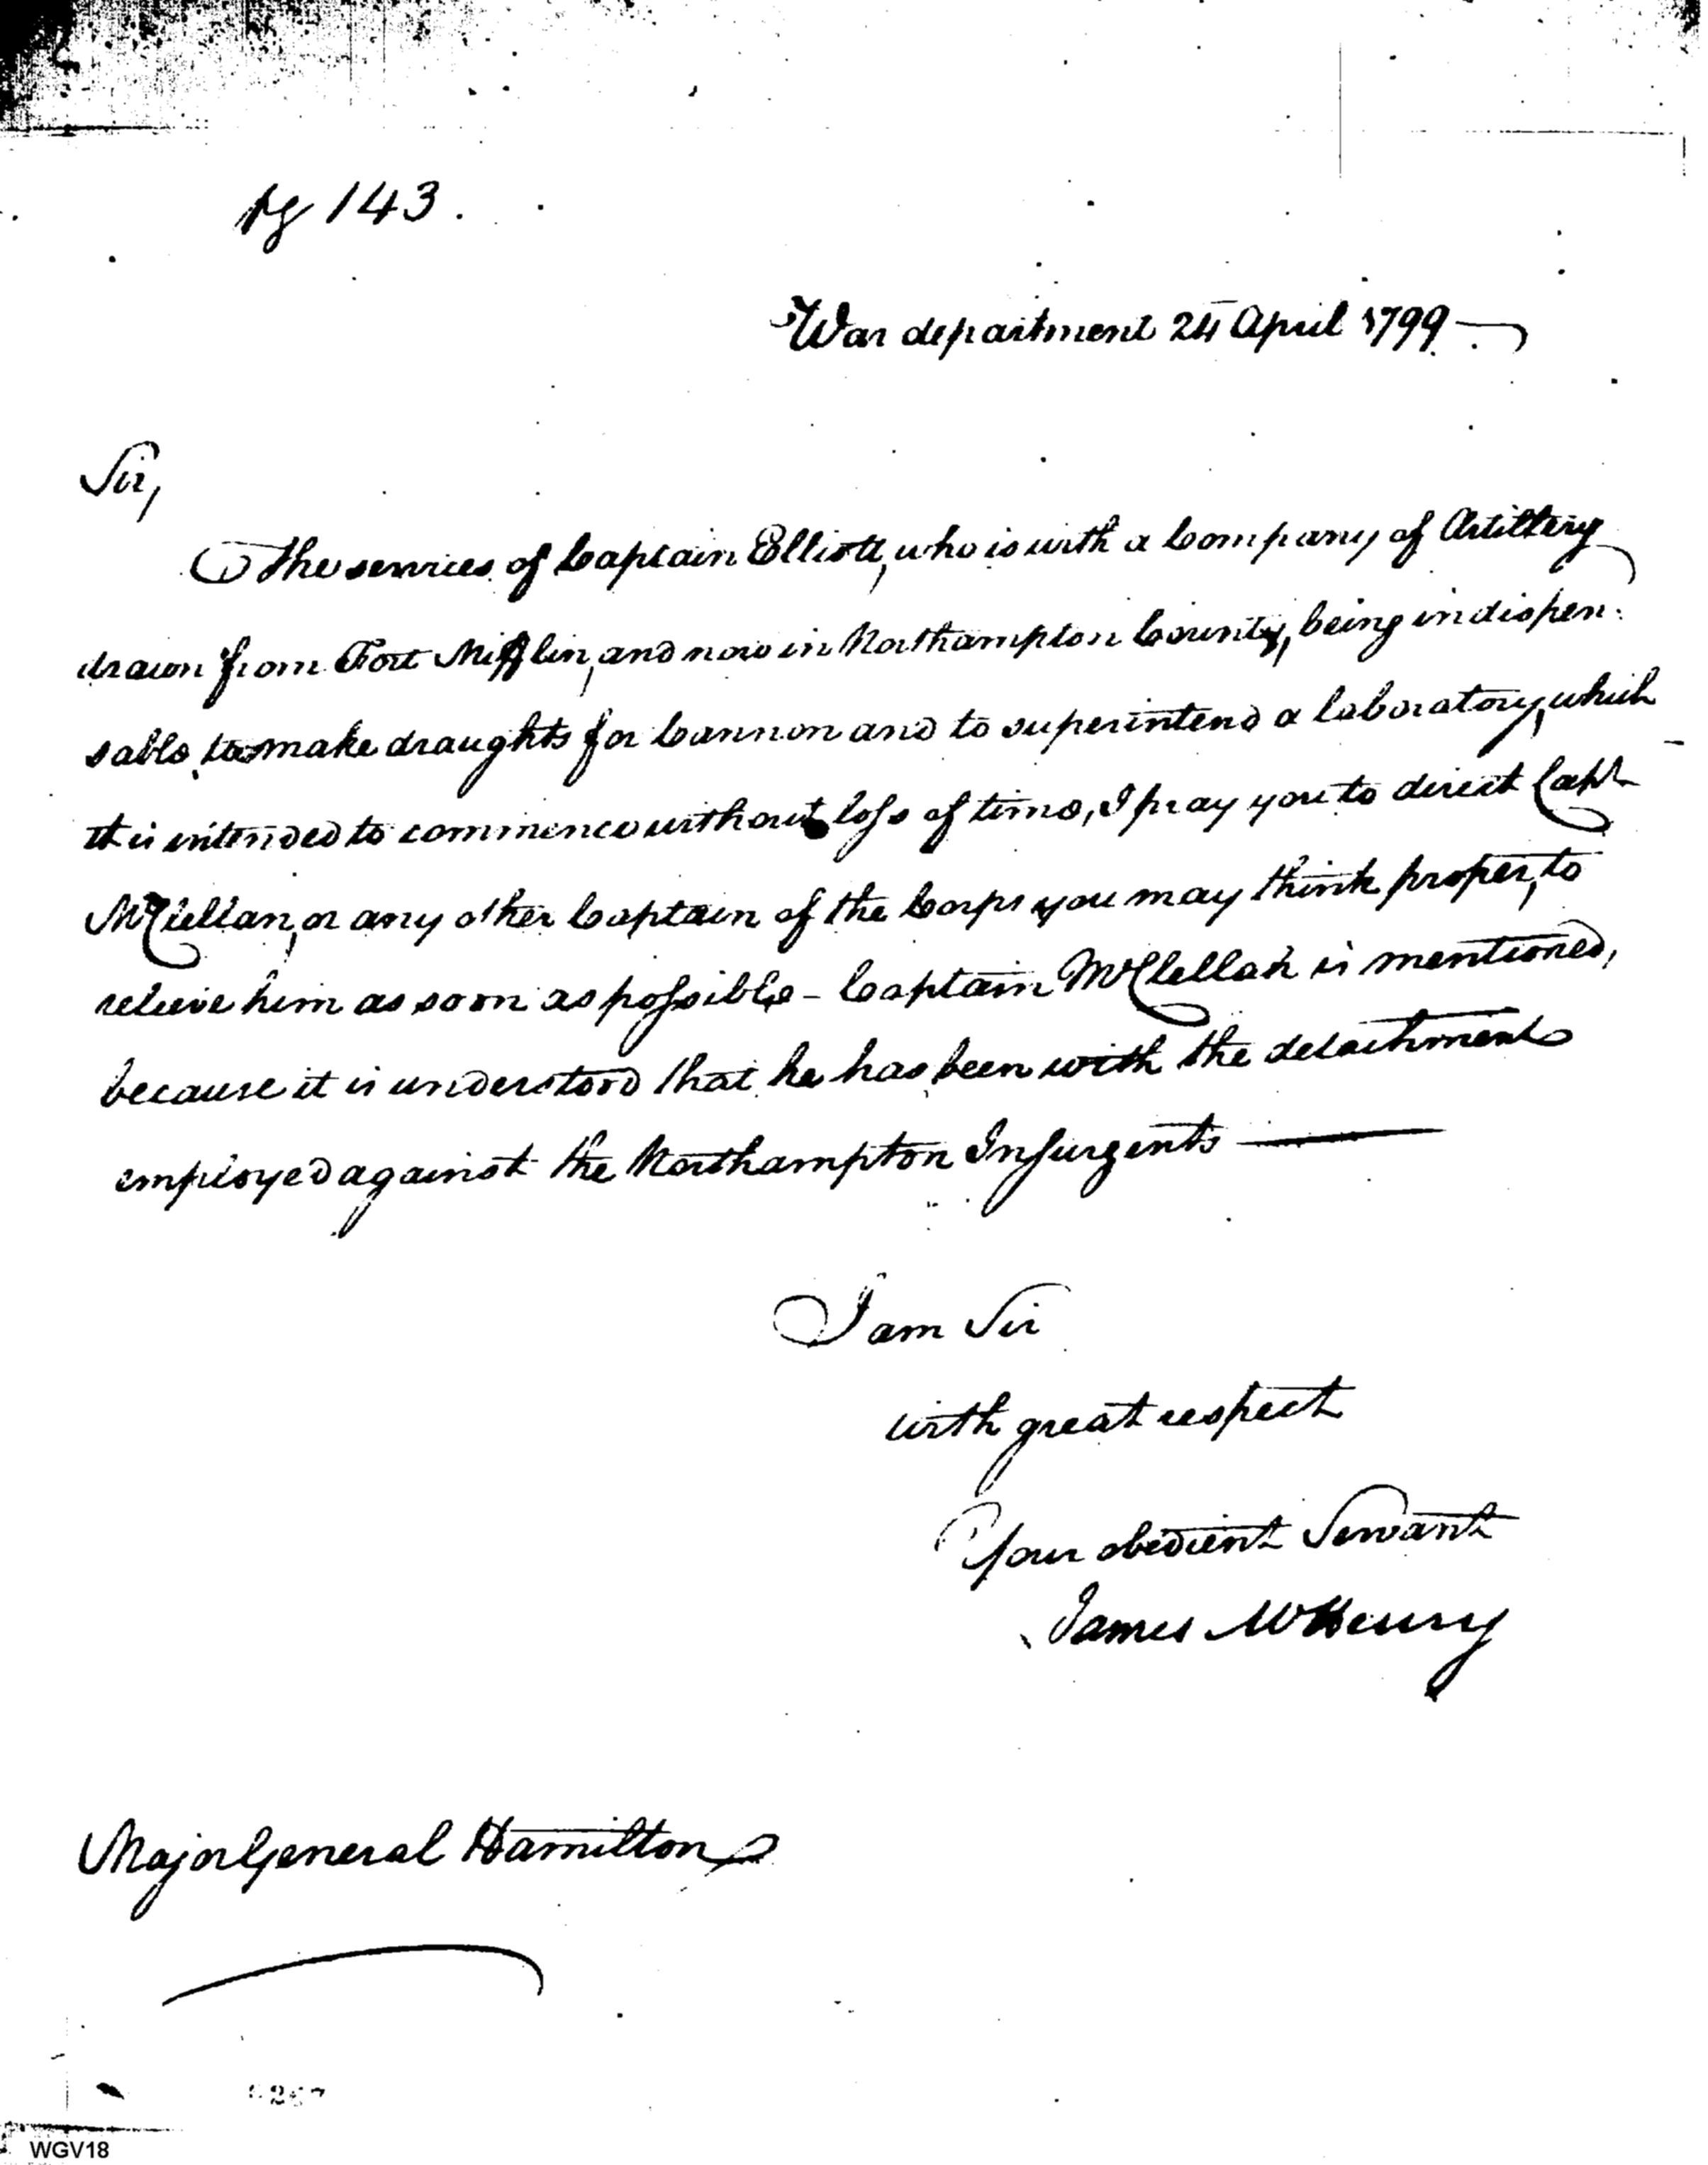 pg 143.
War department 24 April 1799
Sir,
The services of Captain Elliott, who is with a Company of Artillery
drawn from Fort Mifflin, and now in Northampton County, being indispen-
sable, to make draughts for Cannon and to superintend a laboratory, which
it is intended to commence without loss of time, I pray you to direct Capt
McClellan, or any other Captain of the Corps you may think proper, to
relieve him as soon as possible - Captain McClellan is mentioned,
because it is understood that he has been with the detachment
employed against the Northampton Insurgents
I am Sir
with great respect
Your obedient Servant
James McHenry
Major General Hamilton
WGV18